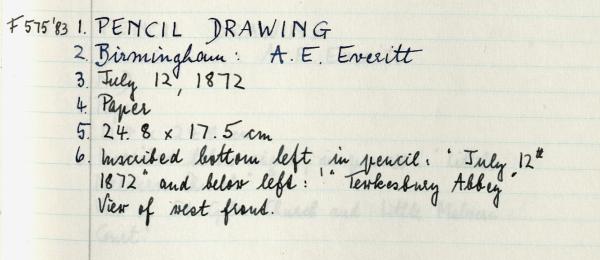 F575'83 1. PENCIL DRAWING
2. Birmingham: A. E. Everitt
3. July 12, 1872
4. Paper
5. 24.8 x 17.5 cm
6. Inscribed bottom left in pencil: "July 12th
1872" and below left: '" Tewkesbury Abbey"
View of west front.